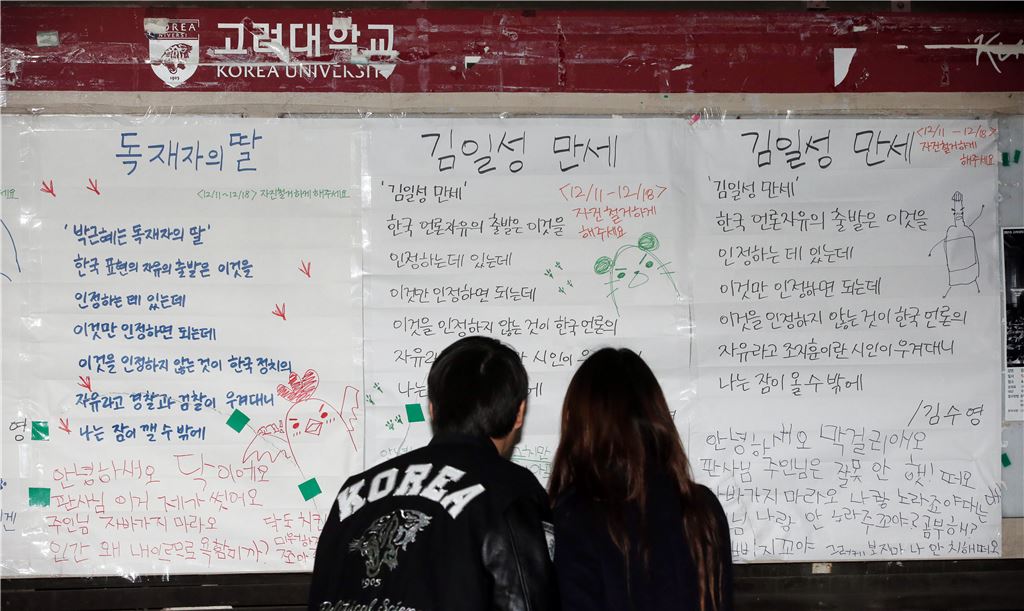 KOREA
1905
고려대학교
KOREA UNIVERSITY
독재자의 딸
<12/11~12/18> 자진철거하게 해주세요
'박근혜는 독재자의 딸'
한국 표현의 자유의 출발은 이것을
인정하는 데 있는데
이것만 인정하면 되는데
이것을 인정하지 않는 것이 한국 정치의
자유라고 경찰과 검찰이 우겨대니
나는 잠이 깰 수 밖에
안녕하새오 닥이에오
판사님 이거 제가 썻어오
주인님 자바가지 마라오
인간 왜 내이르므로 욕함미까?
김일성 만세
<12/11-12/18>
자진철거하게
해주세요
'김일성 만세'
한국 언론자유의 출발은 이것을
인정하는데 있는데
이것만 인정하면 되는데
이것을 인정하지 않는 것이 한국 언론의
자유라
시인이 우
나는
에
김일성 만세
<12/11-12/18>
자진철거하게
해주세요
'김일성 만세'
한국 언론자유의 출발은 이것을
인정하는 데 있는데
이것만 인정하면 되는데
이것을 인정하지 않는 것이 한국 언론의
자유라고 조지훈이란 시인이 우겨대니
나는 잠이 올 수 밖에
/김수영
안녕하새오 막걸리애오
판사님 주인님은 잘못 안 햇!
자바가지 마라오 나랑 노라죠야대는데
님 나랑 안 노라주꼬야? 곰부해?
KOREA
1905
Political Scien